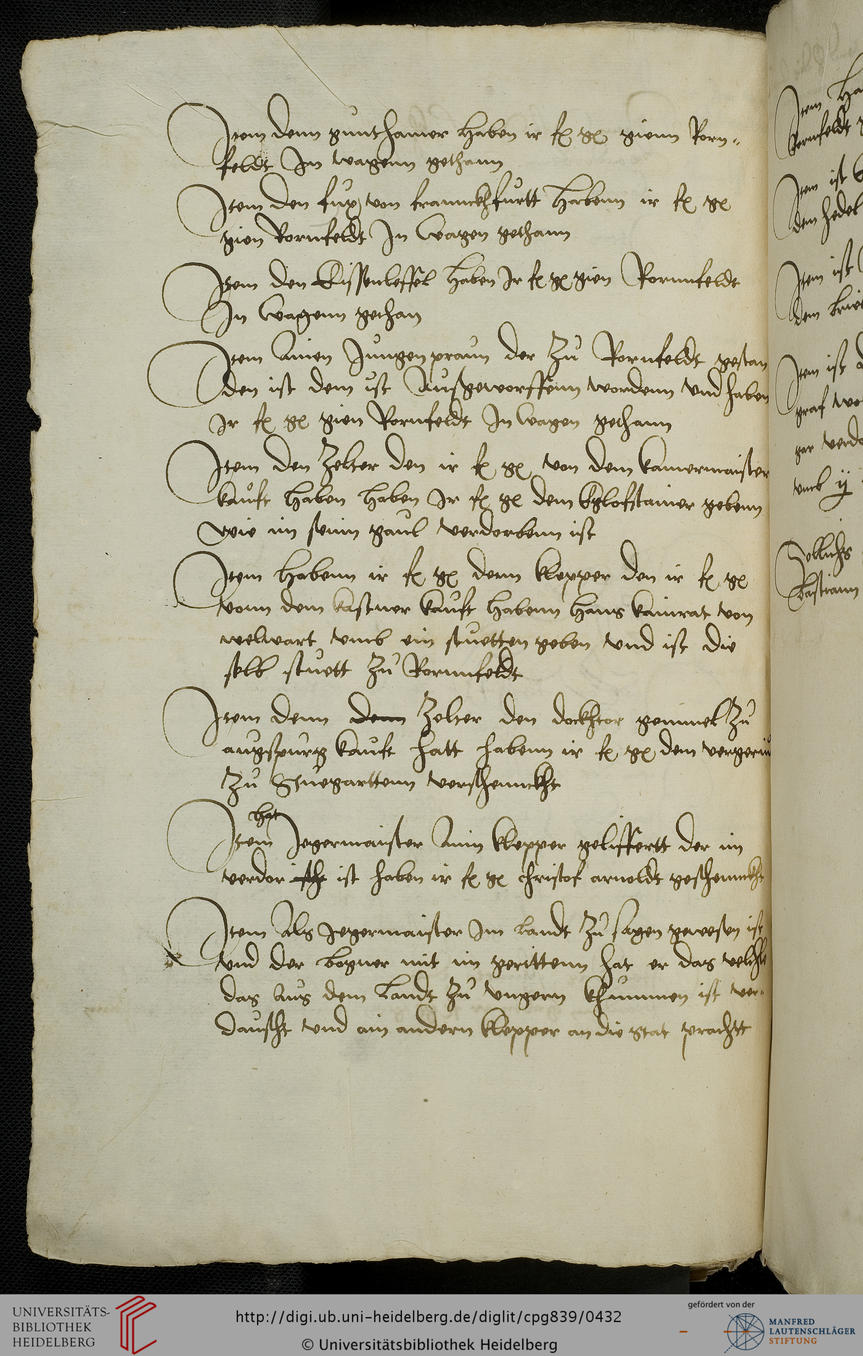 Item denn gunthamer haben ir f g gienn Korn„
feldt In wagenn gethann
Item den fux von frannckhfurtt habenn ir f g
gien Kornfeldt In wagen gethann
Item den haben Ir f g gien Kornnfeldt
In wagenn gethan
Item Ainen Jungen praun der Zu Kornfeldt gestan
den ist dem ist Außgeworffenn wordenn vnd haben
Ir f g gien Kornfeldt In wagen gethann
Item den Zelter den ir f g von dem kamermaister
kauft haben haben Ir f g dem Eglofstainer gebenn
wie im seinn gaul verdorbenn ist
Item habenn ir f g denn klepper den ir f g
vonn dem kastner kauft habenn hans kainrat von
welwart vmb ein stuetten geben vnd ist die
selb stuett Zu Kornnfeldt
Item denn denn Zelter den dockhtor gemmel Zu
augspurg kauft hatt habenn ir f g dem
Zu Stuegarttenn verschennckht
Item hat Jegermaister Ainn klepper geliffertt der im
verdor ist haben ir f g christof arnoldt geschennckht
Item Als Jegermaister Im landt Zu sagen gewesen ist
vnd der bogner mit im gerittenn hat er das
das Aus dem landt Zu vngern khummen ist ver„
dauscht vnd ain andern klepper an die stat prachtt
Item
Kornfeldt
Item ist
den
Item ist
dem
Item ist
graf
gar
vmb
UNIVERSITÄTS-
BIBLIOTHEK
HEIDELBERG
http://digi.ub.uni-heidelberg.de/diglit/cpg839/0432
© Universitätsbibliothek Heidelberg
gefördert von der
MANFRED
LAUTENSCHLÄGER
STIFTUNG